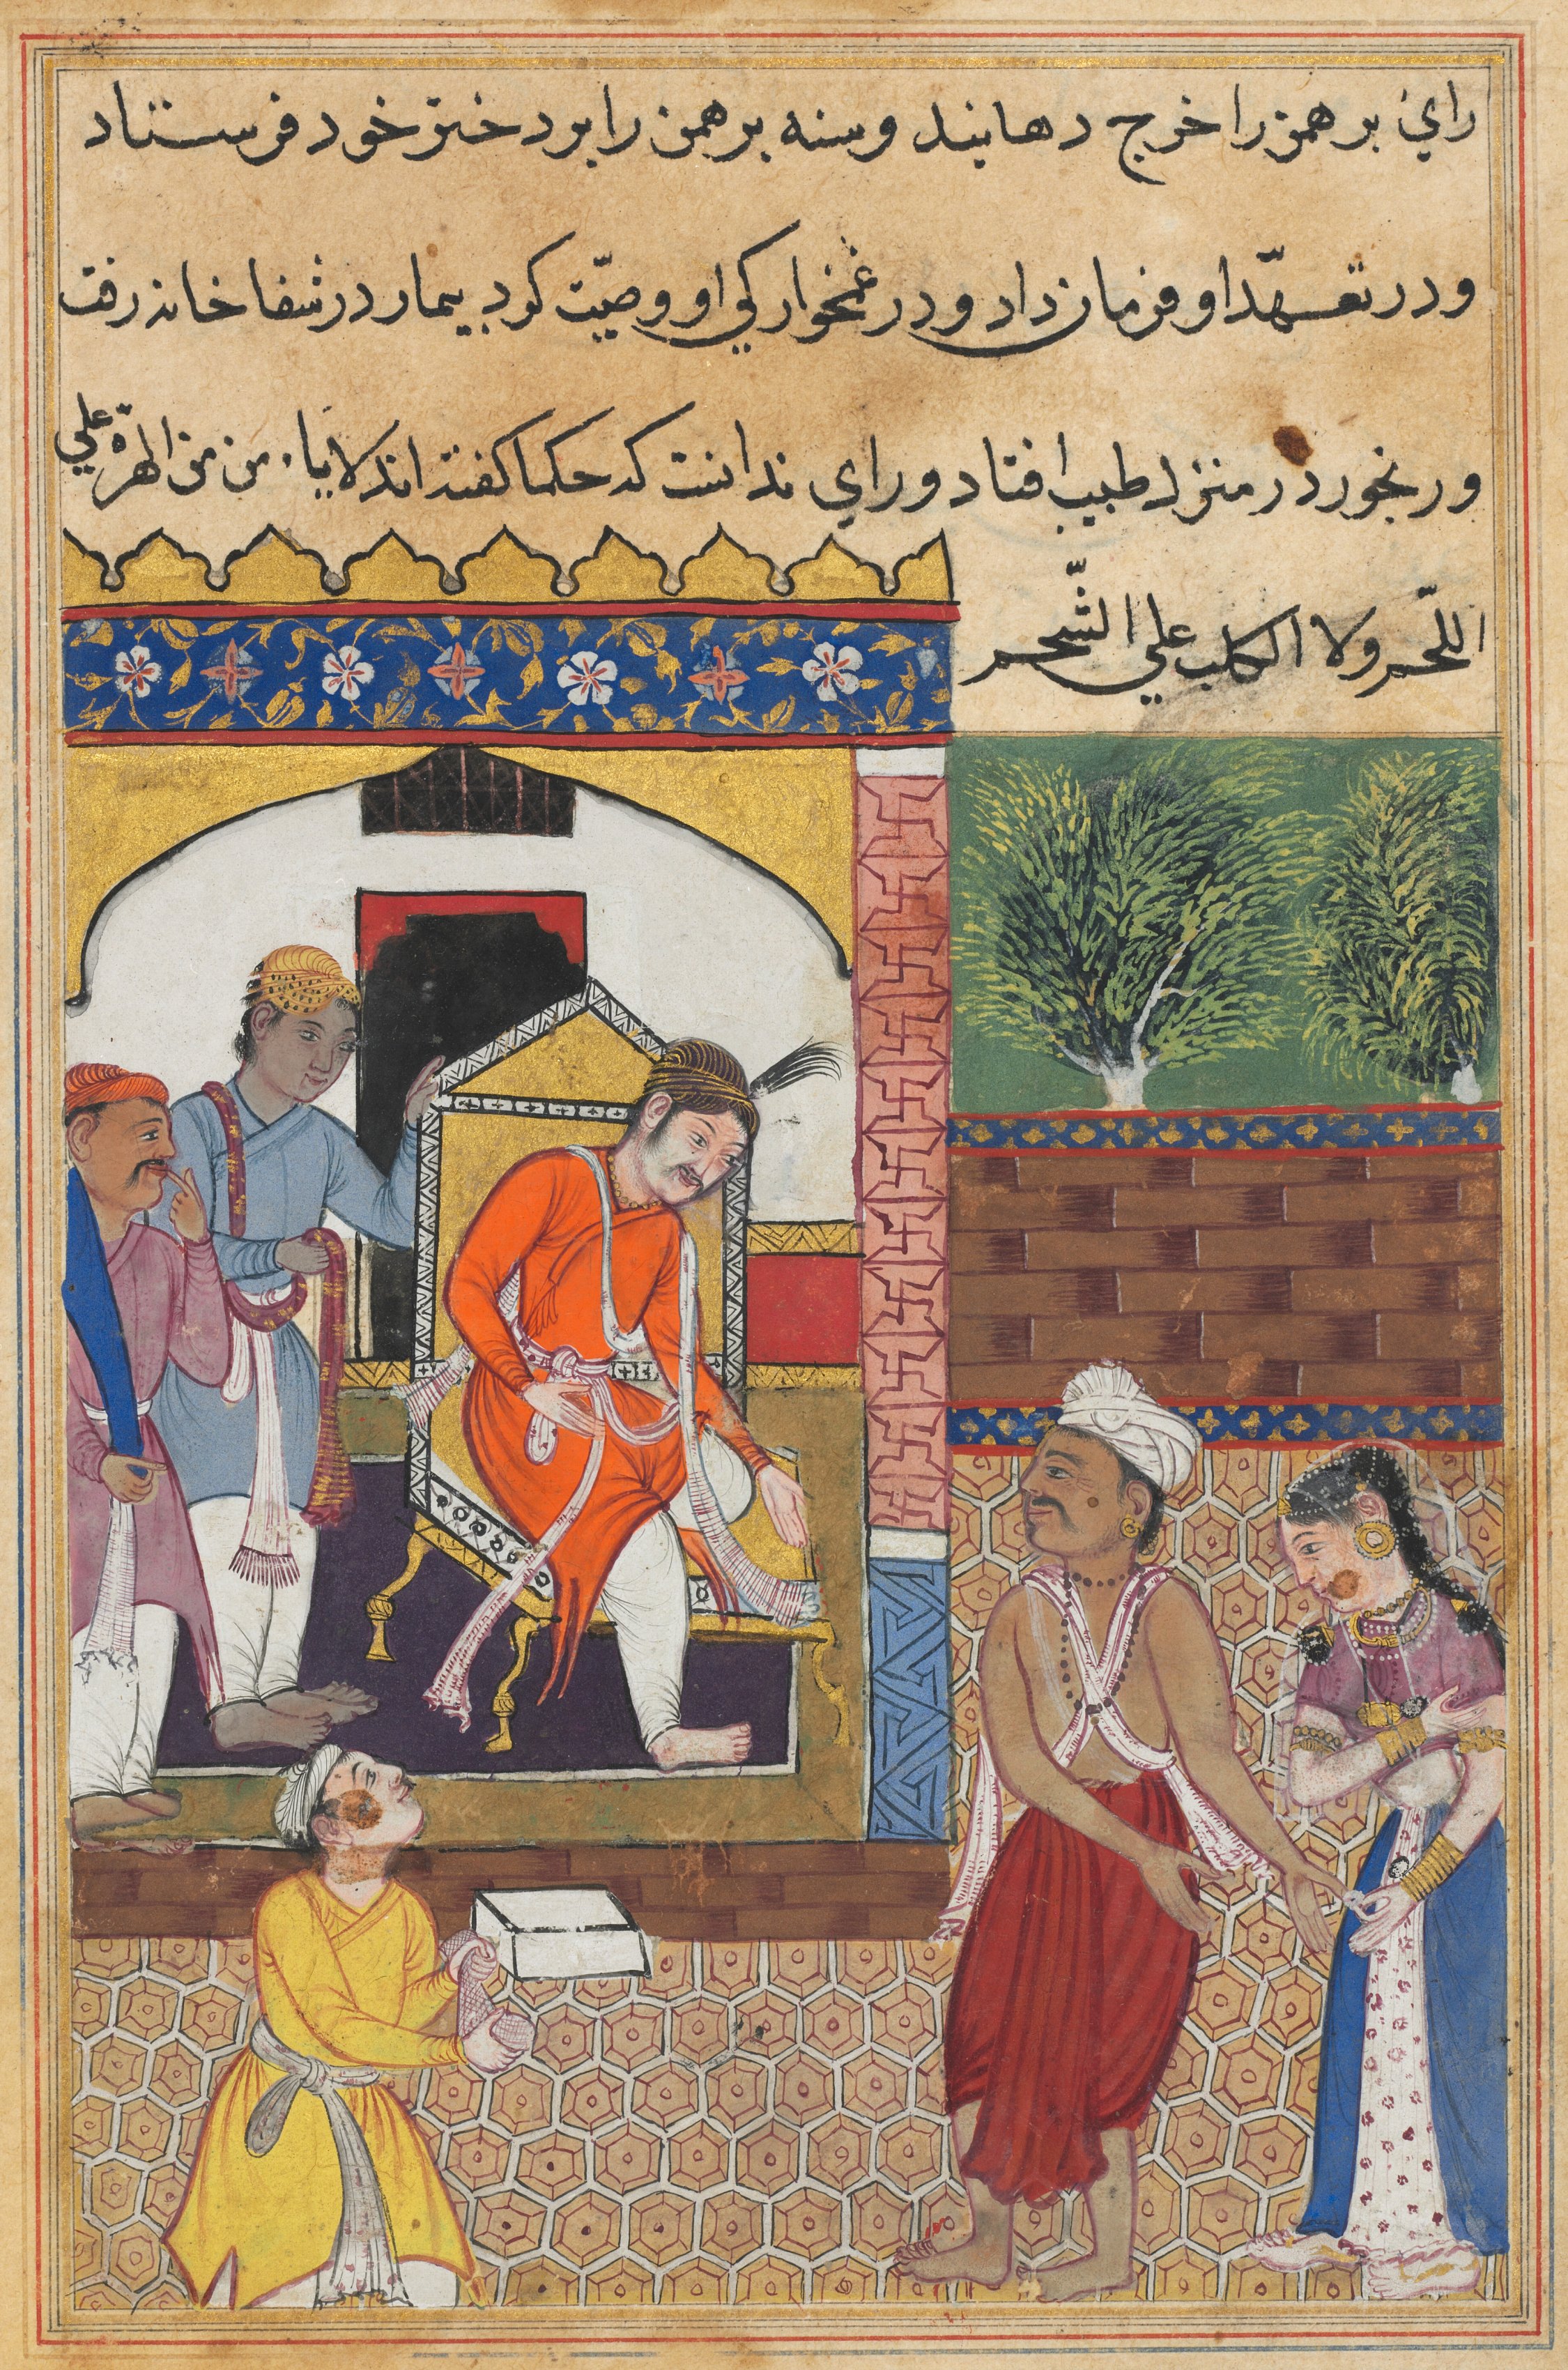 راي برهمن را خرج دهانید و سنه برهمن را برد ختر خود فرستاد
و در تعهّد او فرمان داد و در غمخوارکي او وصیّت کرد بیمار در شفا خانه رفت
و رنجور در منزل طبیب افتاد و راي ندانست که حکما کفته اند لا یامن من الهرّة علي
اللّحم ولا الکلب علي الشّحم